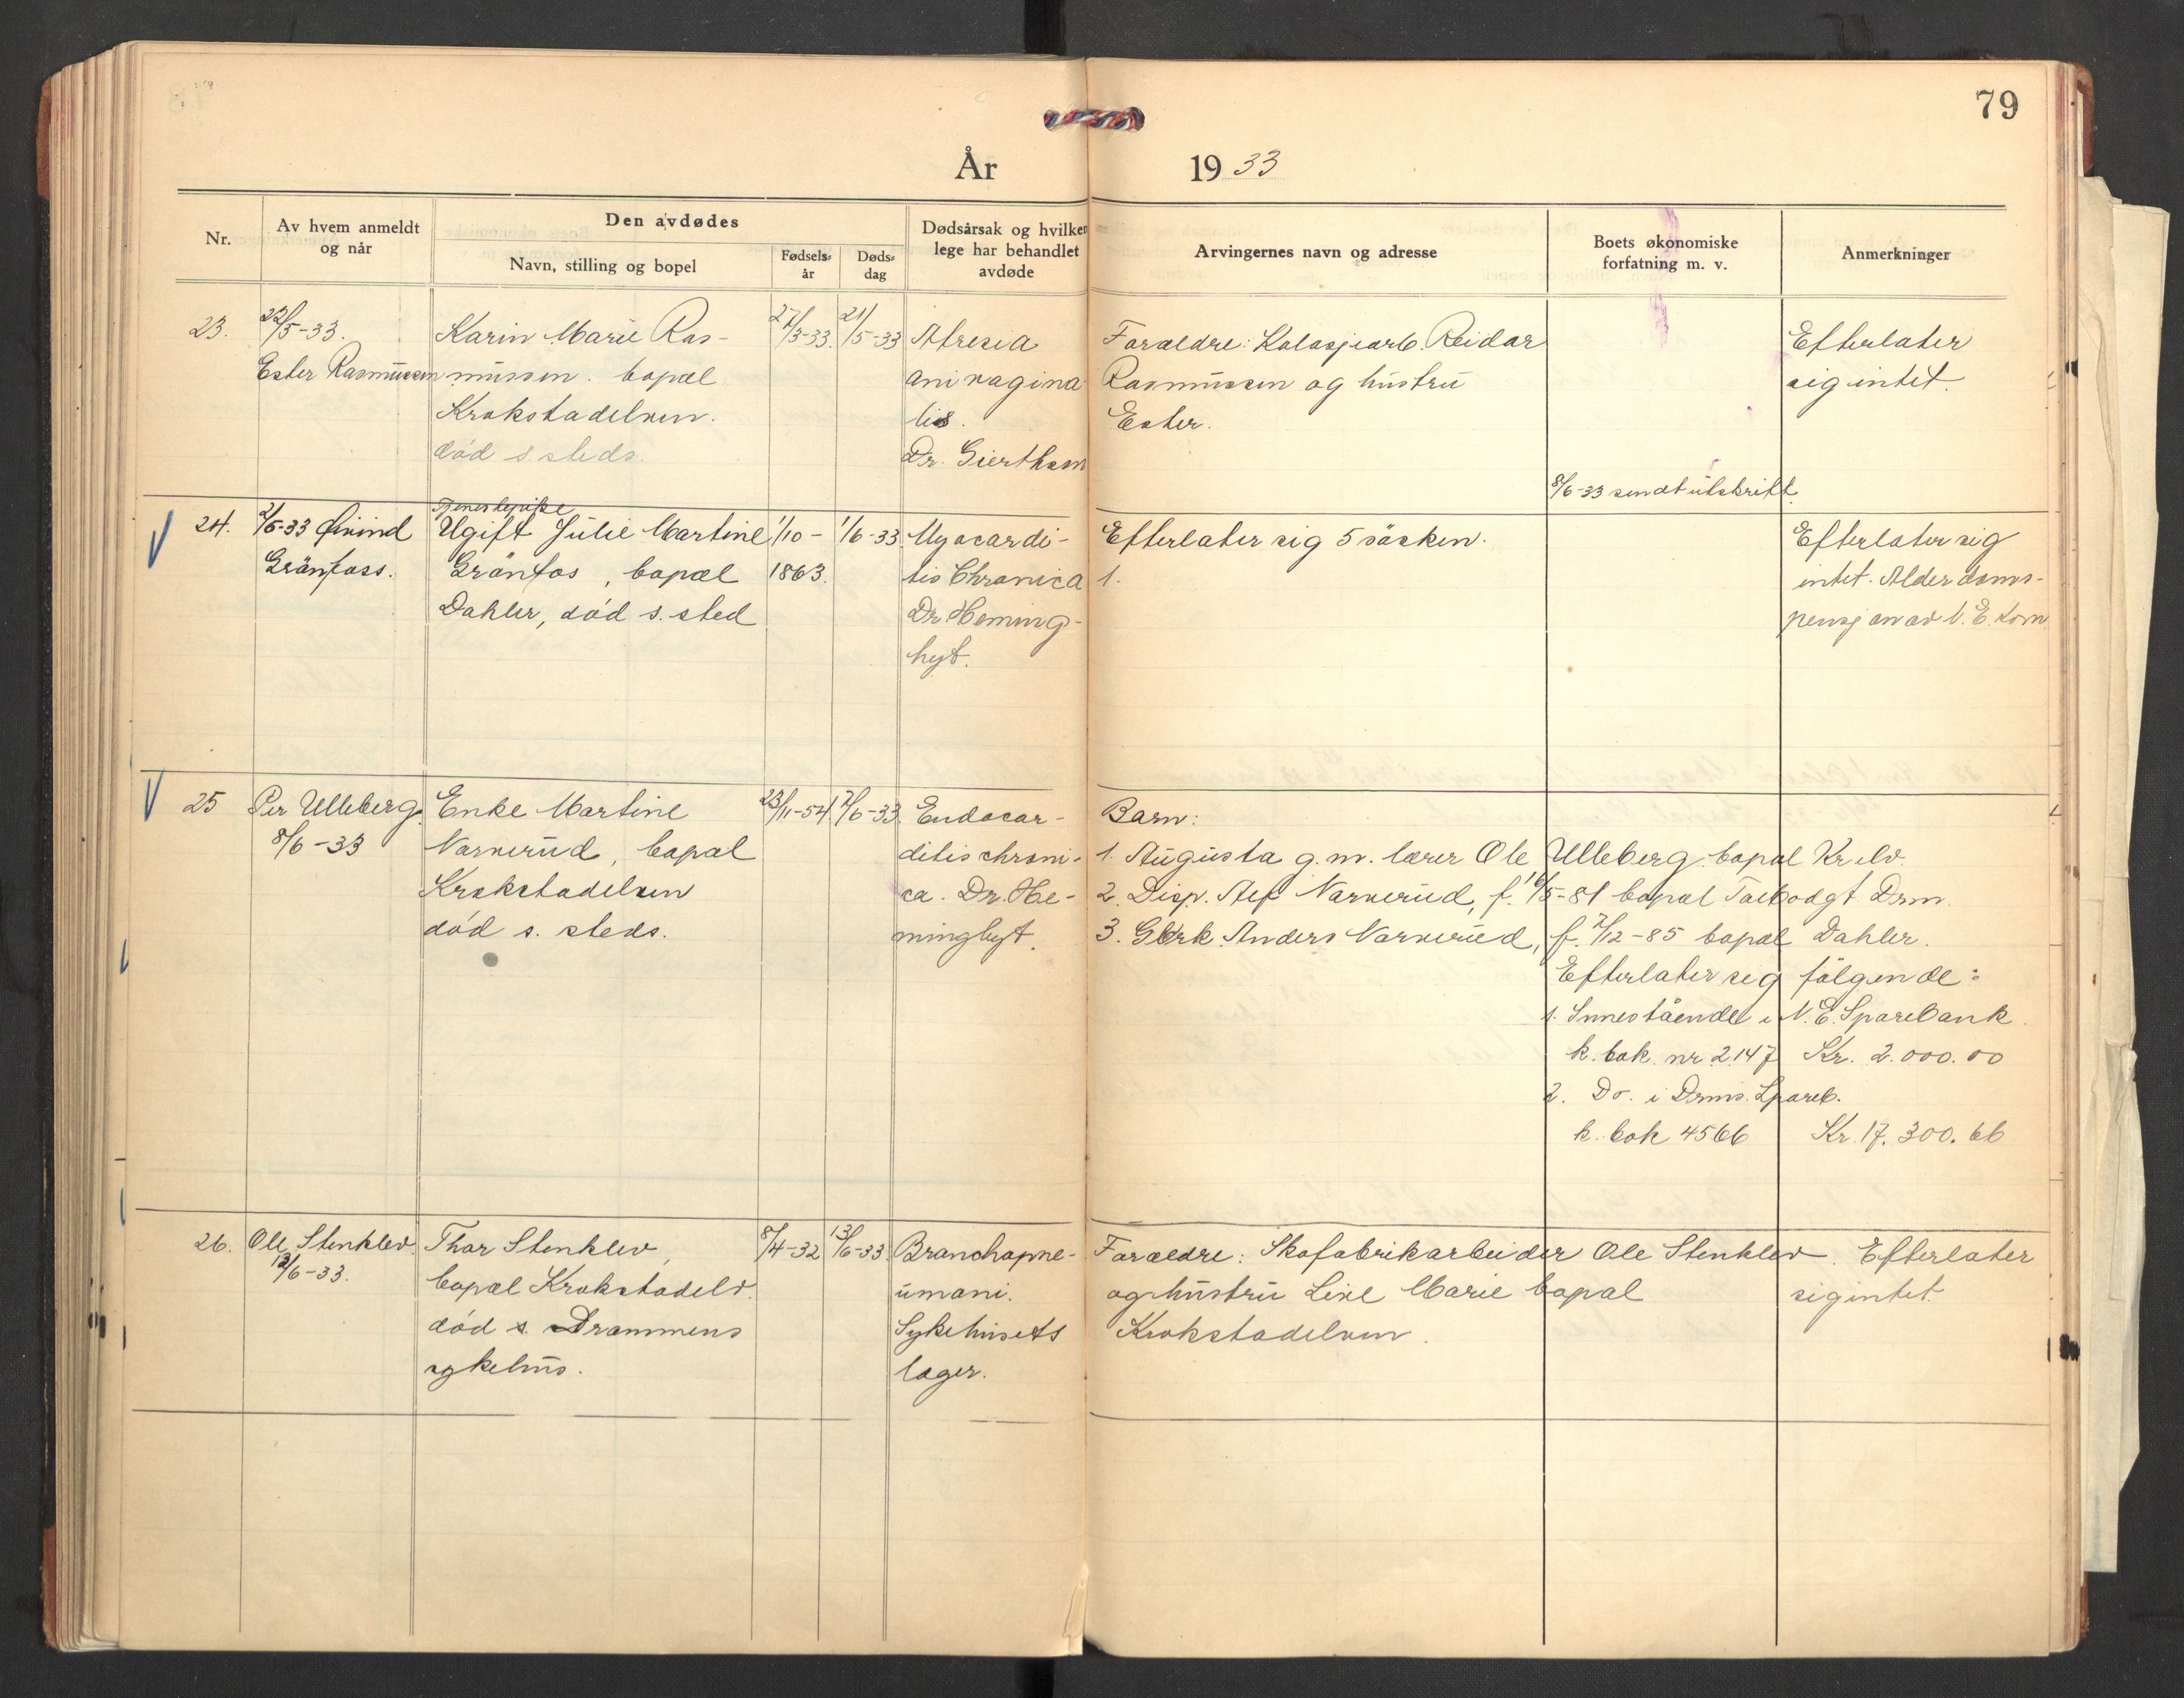 79
År 1933
Nr.
Av hvem anmeldt
og når
Den avdødes
Navn, stilling og bopel
Fødsels-
år
Døds-
dag
Dødsårsak og hvilken
lege har behandlet
avdøde
Arvingernes navn og adresse
Boets økonomiske
forfatning m. v.
Anmerkninger
23.
22/5-33.
Ester Rasmussen
Karin Marie Ras-
mussen. bopæl
Krokstadelven.
død s. steds.
21/5-33
Atresia
ani vagina
lis.
Dr. Giertsen
Forældre: Kolasjearb. Reidar
Rasmussen og hustru
Ester.
Efterlater
sig intet.
8/6-33 sendt utskrift
24.
2/6-33 Øivind
Grönfoss.
Tjenestepike
Ugift Julie Martine
Grönfos, bopæl
Dahler, død s. sted
1/10-
1863.
1/6-33
Myocardi-
tis Chronica
Dr. Heming-
hyt.
Efterlater sig 5 søsken.
1.
Efterlater sig
intet. Alderdoms-
pensjon av N. E. kom
25
Per Ulleberg.
8/6-33
Enke Martine
Narverud, bopæl
Krokstadelven
död s. steds.
23/11-54
7/6-33
Endocar-
ditis chroni-
ca. Dr. He-
minghyt.
Barn:
1. Augusta g. m. lærer Ole Ulleberg. bopæl Kr.elv.
2. Disp. Alf Narverud, f. 10/5-81 bopæl Drm.
3. Anders Narverud, f. 7/12-85 bopæl Dahler.
Efterlater sig følgende:
1. Innestående i N. E. Sparebank.
k. bok nr. 2147 Kr. 2.000.00
2. Do. i Drms. Spareb.
k. bok 4566 Kr. 17.300.66
26.
Ole Stenklev.
13/6-33.
Thor Stenklev,
bopæl Krokstadelv.
död s. Drammens
sykehus.
8/4-32
13/6-33
Bronchopne-
umoni.
Sykehusets
læger.
Forældre: Skofabrikarbeider Ole Stenklev
og hustru Live Marie bopæl
Krokstadelven.
Efterlater
sig intet.